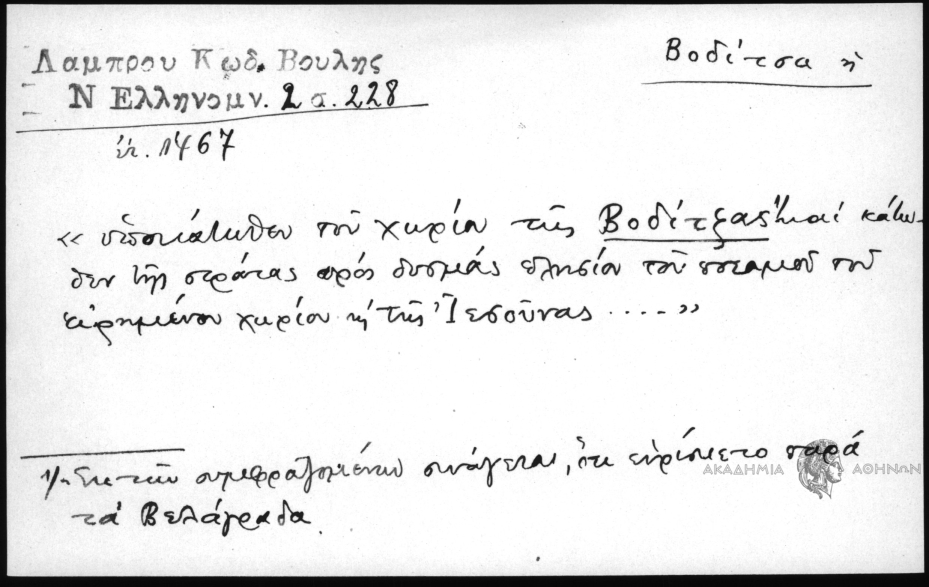 Λαμπρου Κωδ. Βουλης
Βοδίτσα ἡ
Ν Ελληνομν. 2 σ. 228
ἐτ. 1467
« ὑποκάτωθεν τοῦ χωρίου τῆς Βοδίτζας¹⁾ καὶ κάτω-
θεν τῆς στράτας πρὸς δυσμὰς πλησίον τοῦ ποταμοῦ τοῦ
εἰρημένου χωρίου ἡ τῆς Ἰεσούνας .... »
1/ Ἐκ τῶν συμφραζομένων συνάγεται, ὅτι εὑρίσκετο παρὰ
τὰ Βελάγραδα.
ΑΚΑΔΗΜΙΑ ΑΘΗΝΩΝ